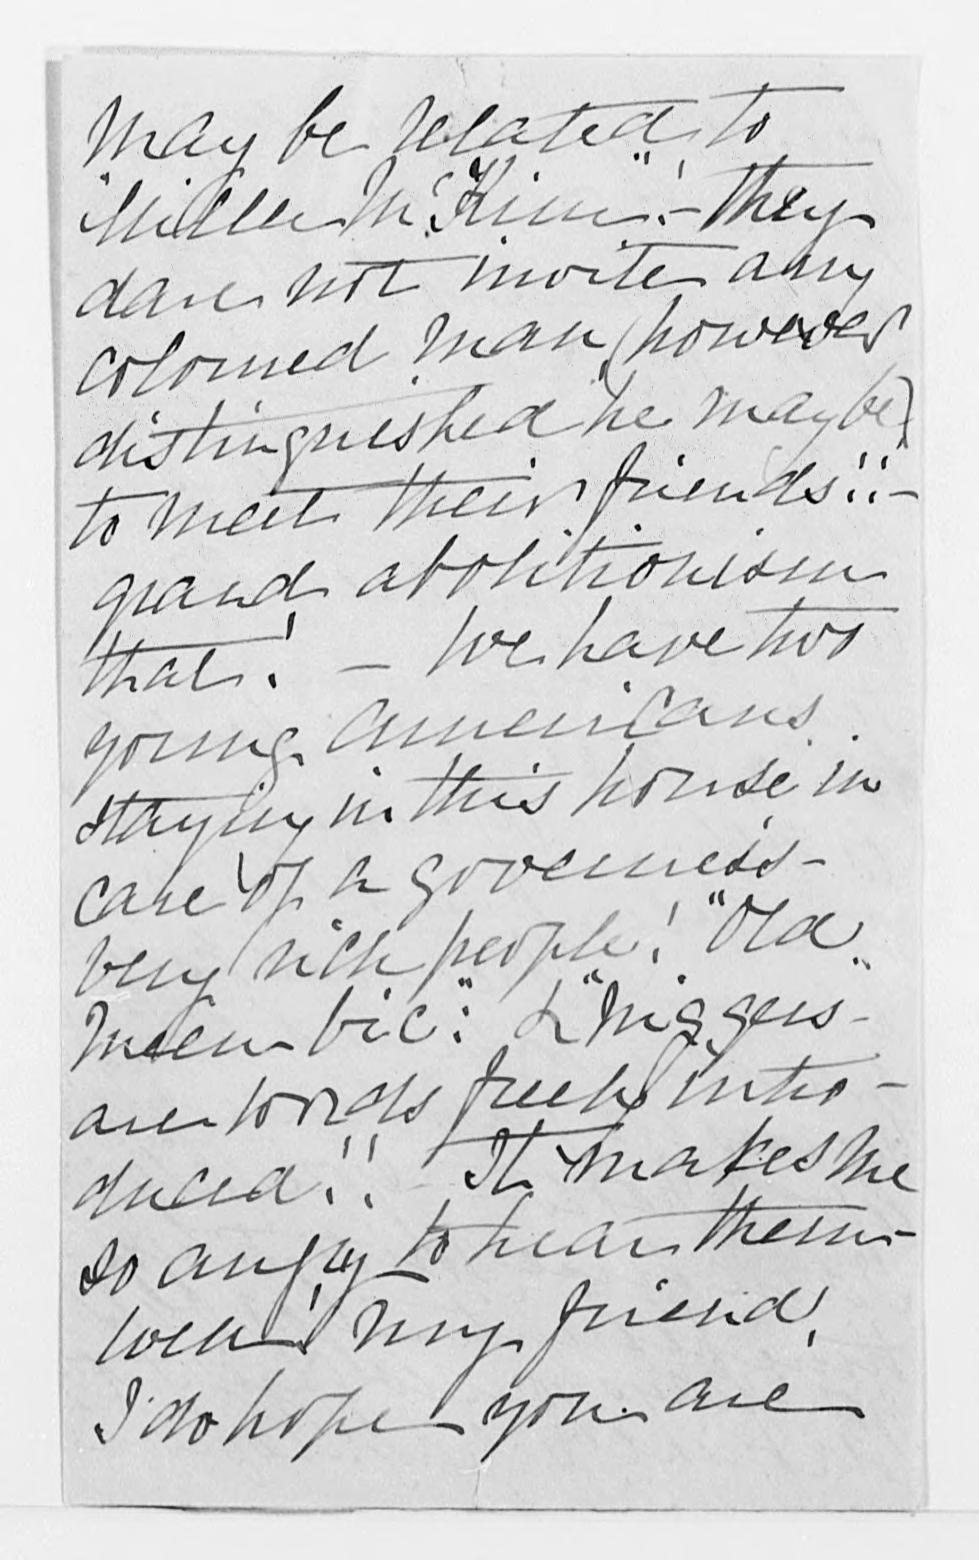 may be related to
"Miller McKim"! - they
dare not invite any
coloured man, (however
distinguished he may be)
to meet their friends!! -
grand abolitionism
that! - We have two
young Americans
staying in this house in
care of a governess -
very rich people! "Old
bie": & "Niggers -
are words freely intro-
duced!! It makes me
so angry to hear them -
well! my friend,
I do hope you are